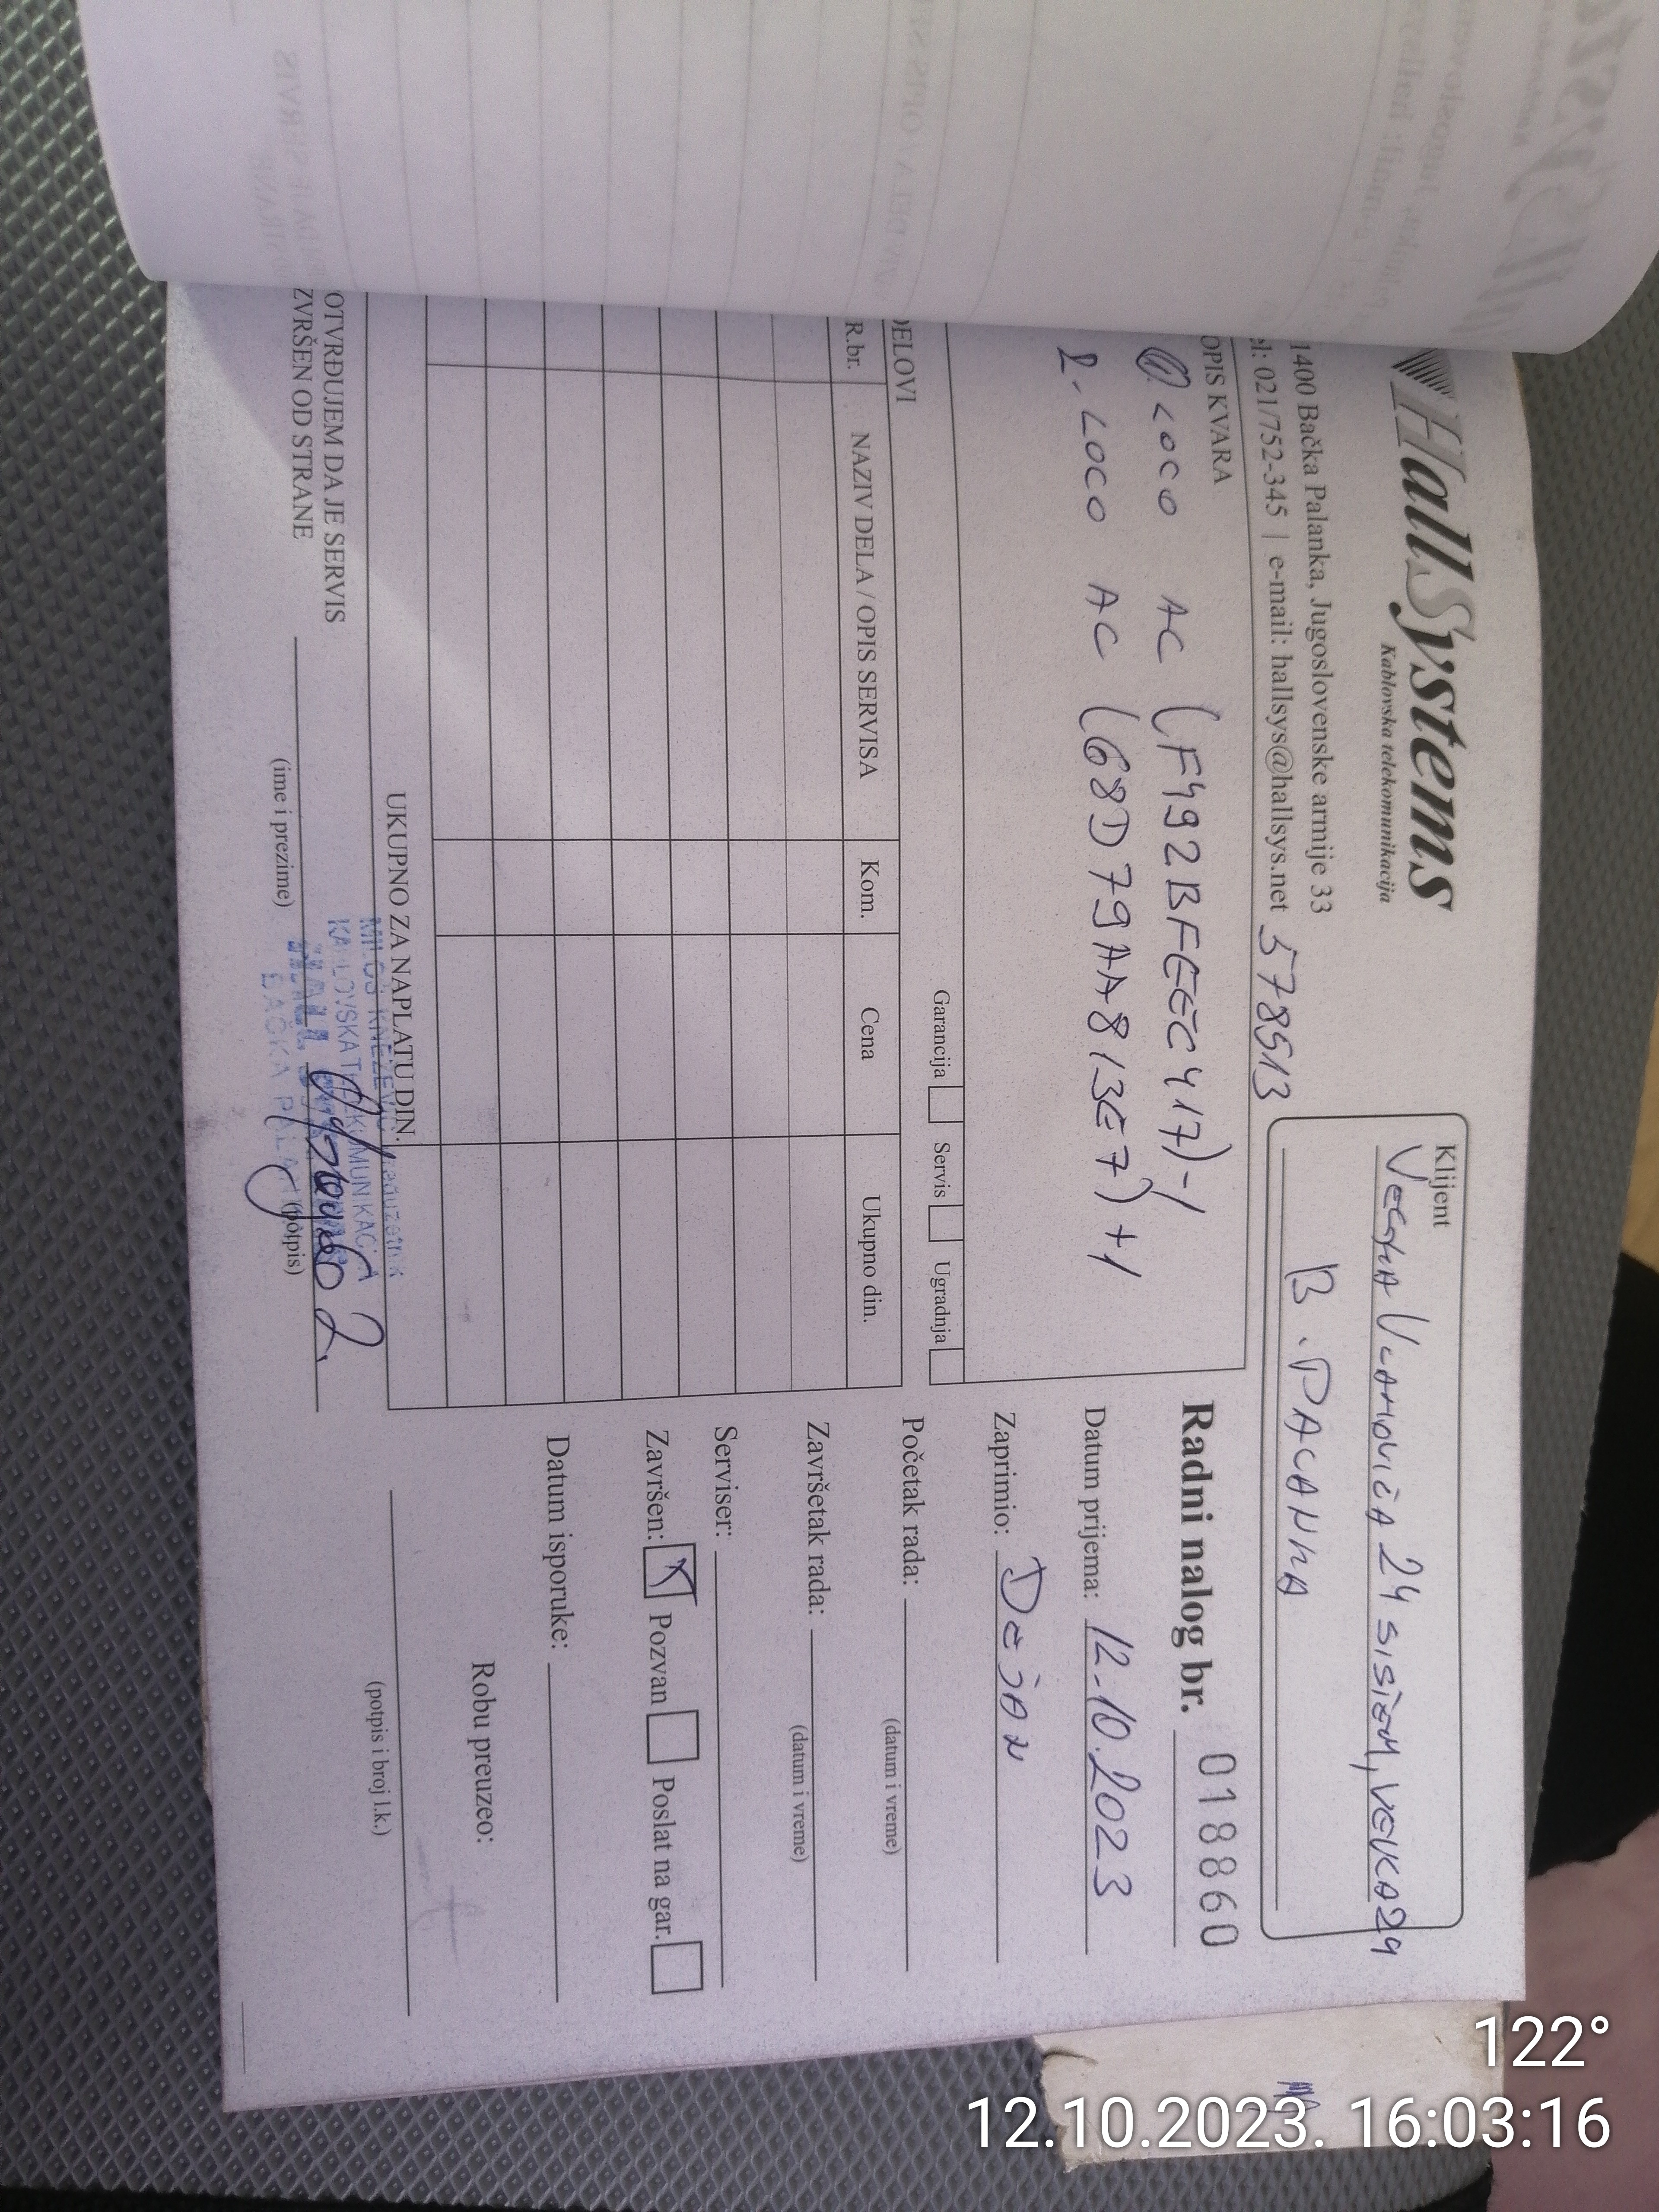 HallSystems
Kablovska telekomunikacija
1400 Bačka Palanka, Jugoslovenske armije 33
el: 021/752-345 | e-mail: hallsys@hallsys.net 578513
Klijent
24 SISTEM, VEVKA24
B. PACANKA
OPIS KVARA
1. LOCO AC (F492BFEEC417)-1
2. LOCO AC (68D79AA813E7)+1
Garancija Servis Ugradnja
DELOVI
R.br. NAZIV DELA / OPIS SERVISA Kom. Cena Ukupno din.
UKUPNO ZA NAPLATU DIN.
OTVRĐUJEM DA JE SERVIS
ZVRŠEN OD STRANE
(ime i prezime) (potpis)
MILOŠ KNEŽEVIĆ
BAČKA PALANKA
Radni nalog br. 018860
Datum prijema: 12.10.2023
Zaprimio: Dejan
Početak rada:
(datum i vreme)
Završetak rada:
(datum i vreme)
Serviser:
Završen: Pozvan Poslat na gar.
Datum isporuke:
Robu preuzeo:
(potpis i broj l.k.)
122°
12.10.2023. 16:03:16